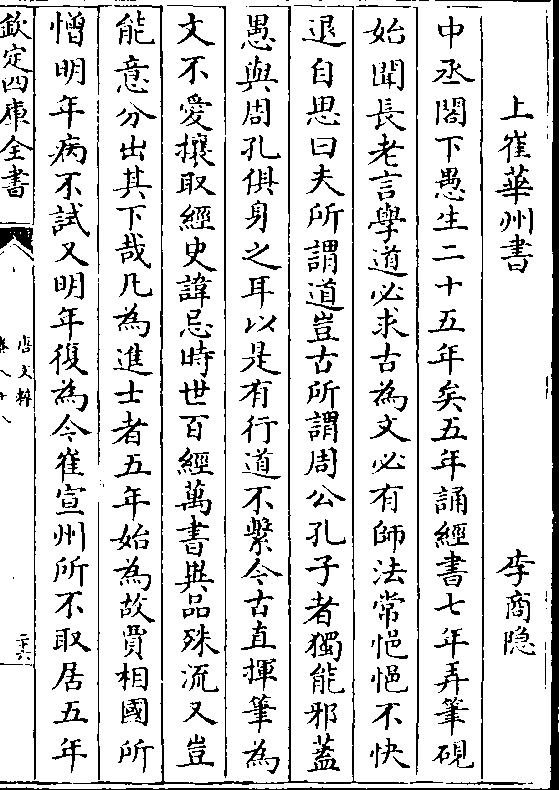 上崔華州書 李商隐
中丞閤下愚生二十五年矣五年誦經書七年弄筆硯
始聞長老言學道必求古為文必有師法常悒悒不快
退自思曰夫所謂道豈古所謂周公孔子者獨能邪蓋
愚與周孔俱身之耳以是有行道不繫今古直揮筆為
文不愛攘取經史諱忌時世百經萬書異品殊流又豈
能意分出其下哉凡為進士者五年始為故賈相國所
憎明年病不試又明年復為今崔宣州所不取居五年
欽定四庫全書
唐文粹
卷八十八
二六